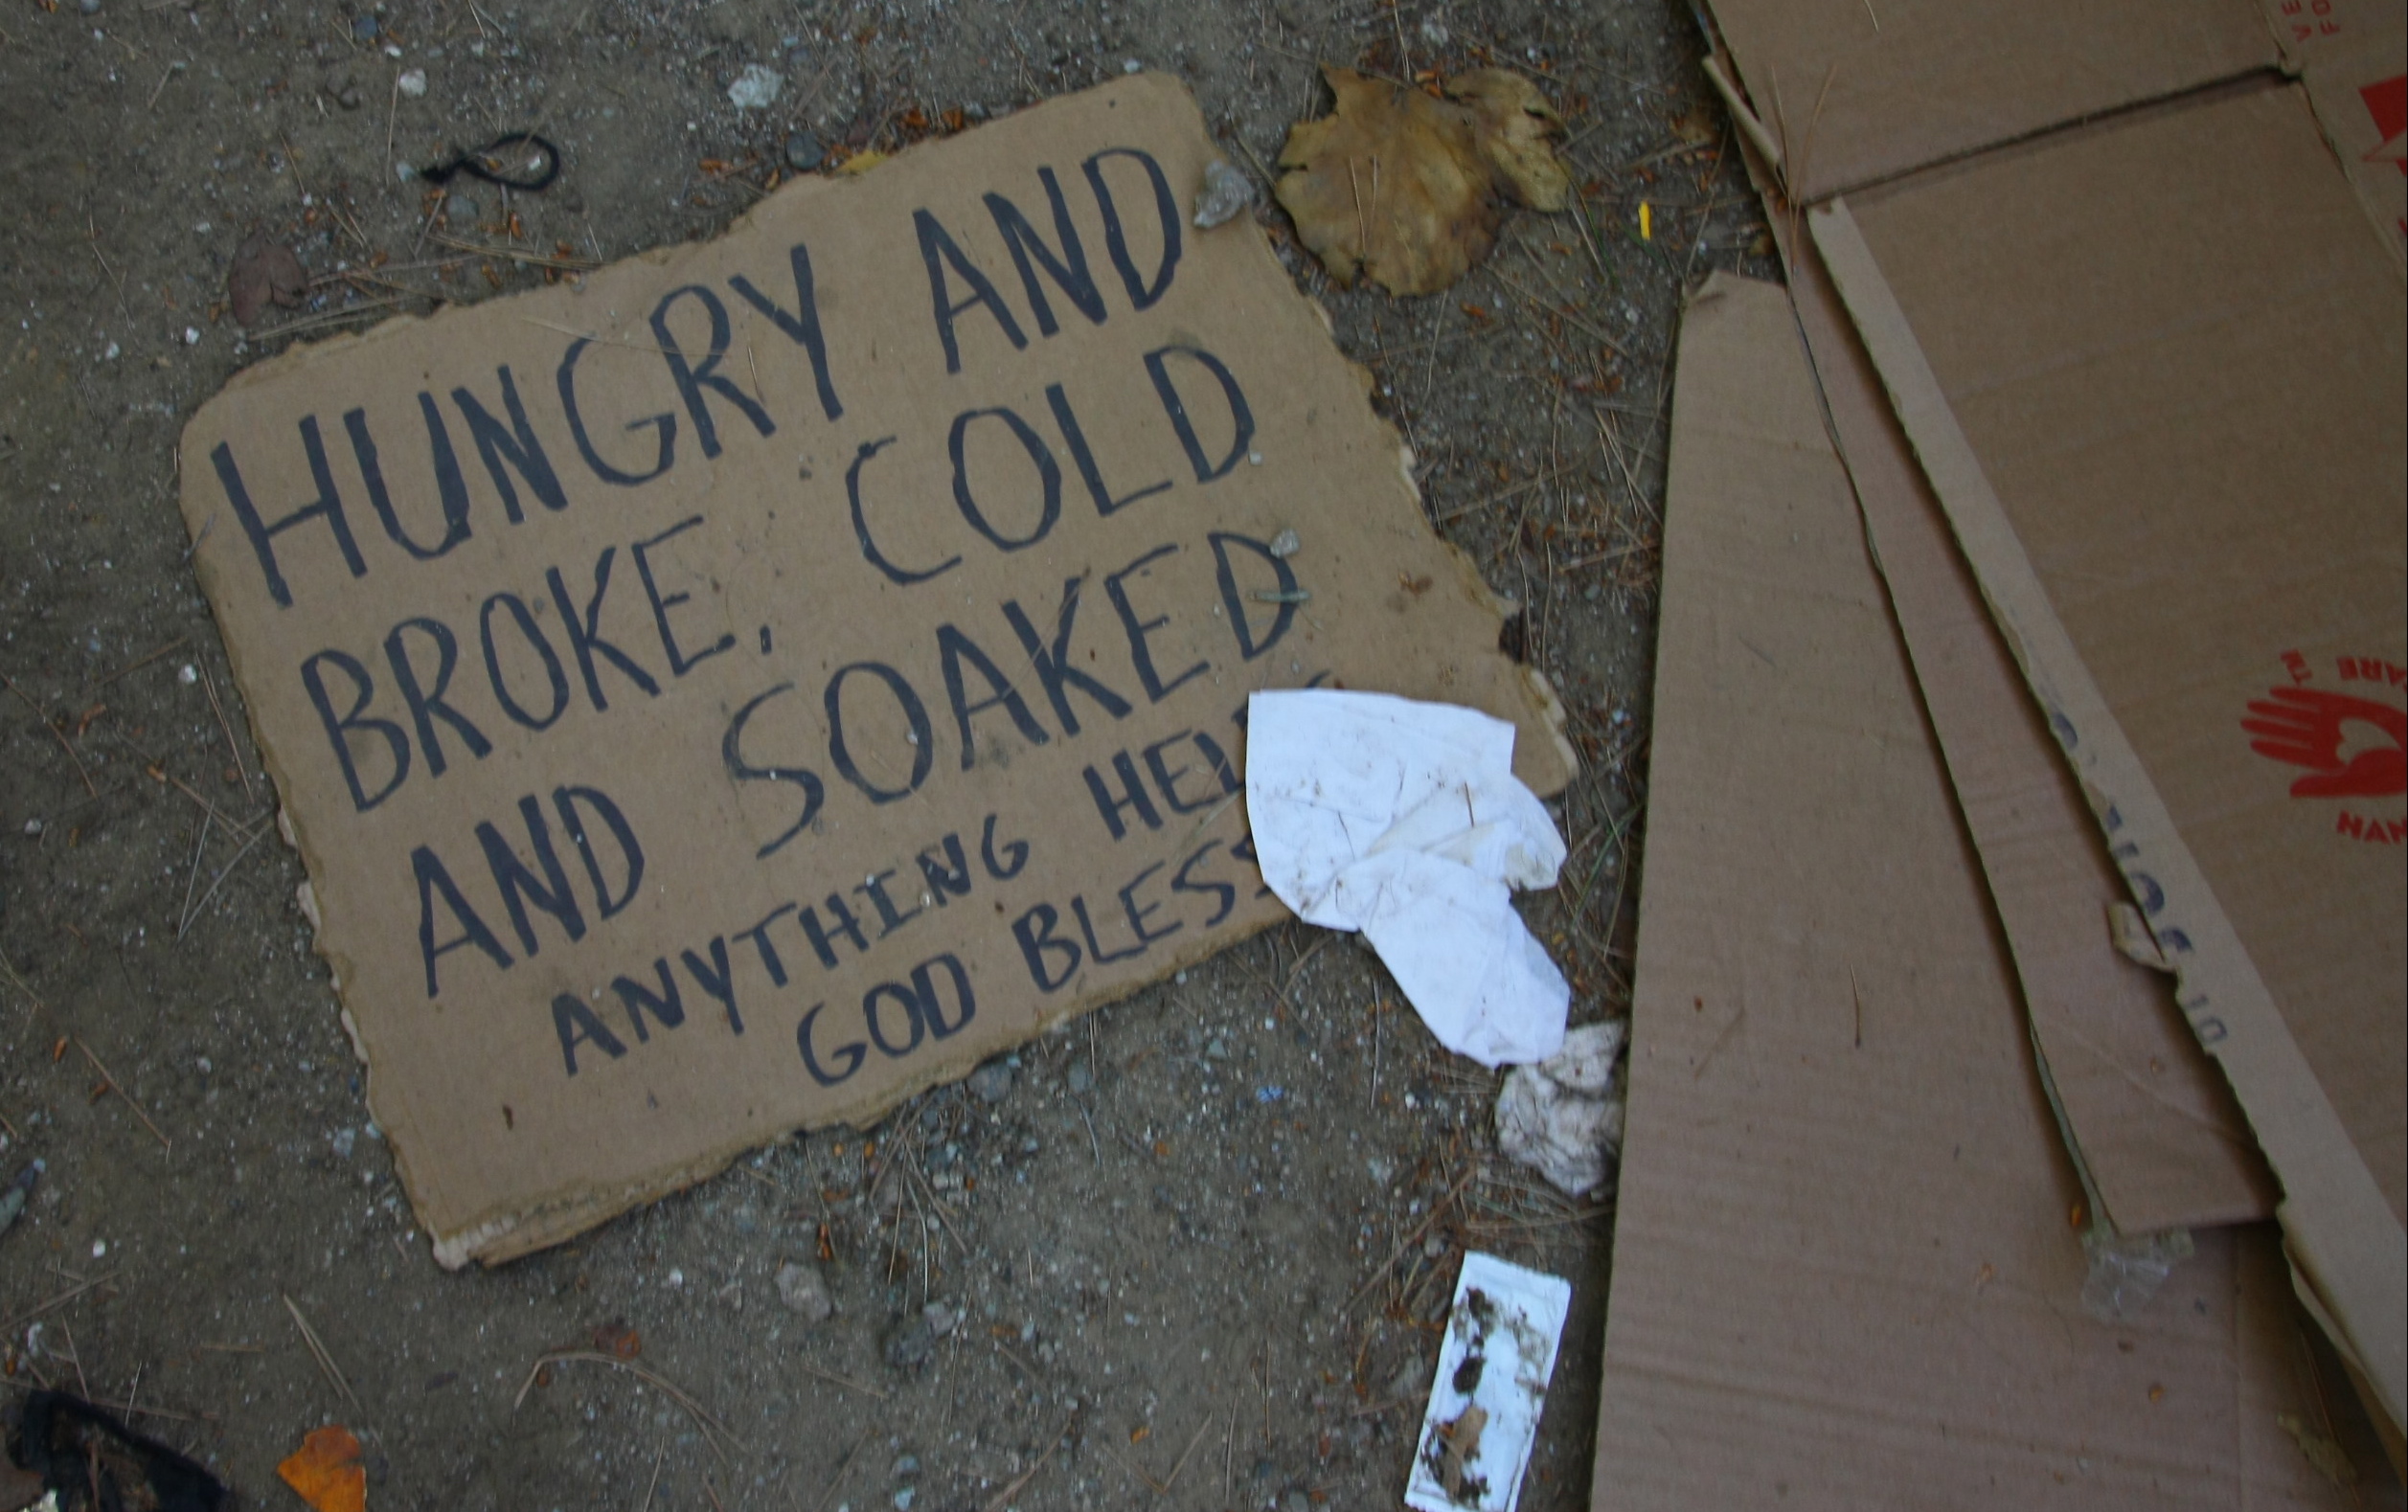 HUNGRY AND
BROKE, COLD
AND SOAKED
ANYTHING HEL
GOD BLESS